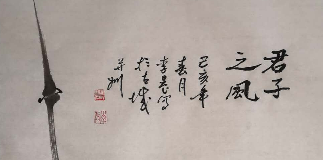 君子
之風
己亥年
春月
李晨寫
於古城
荊州